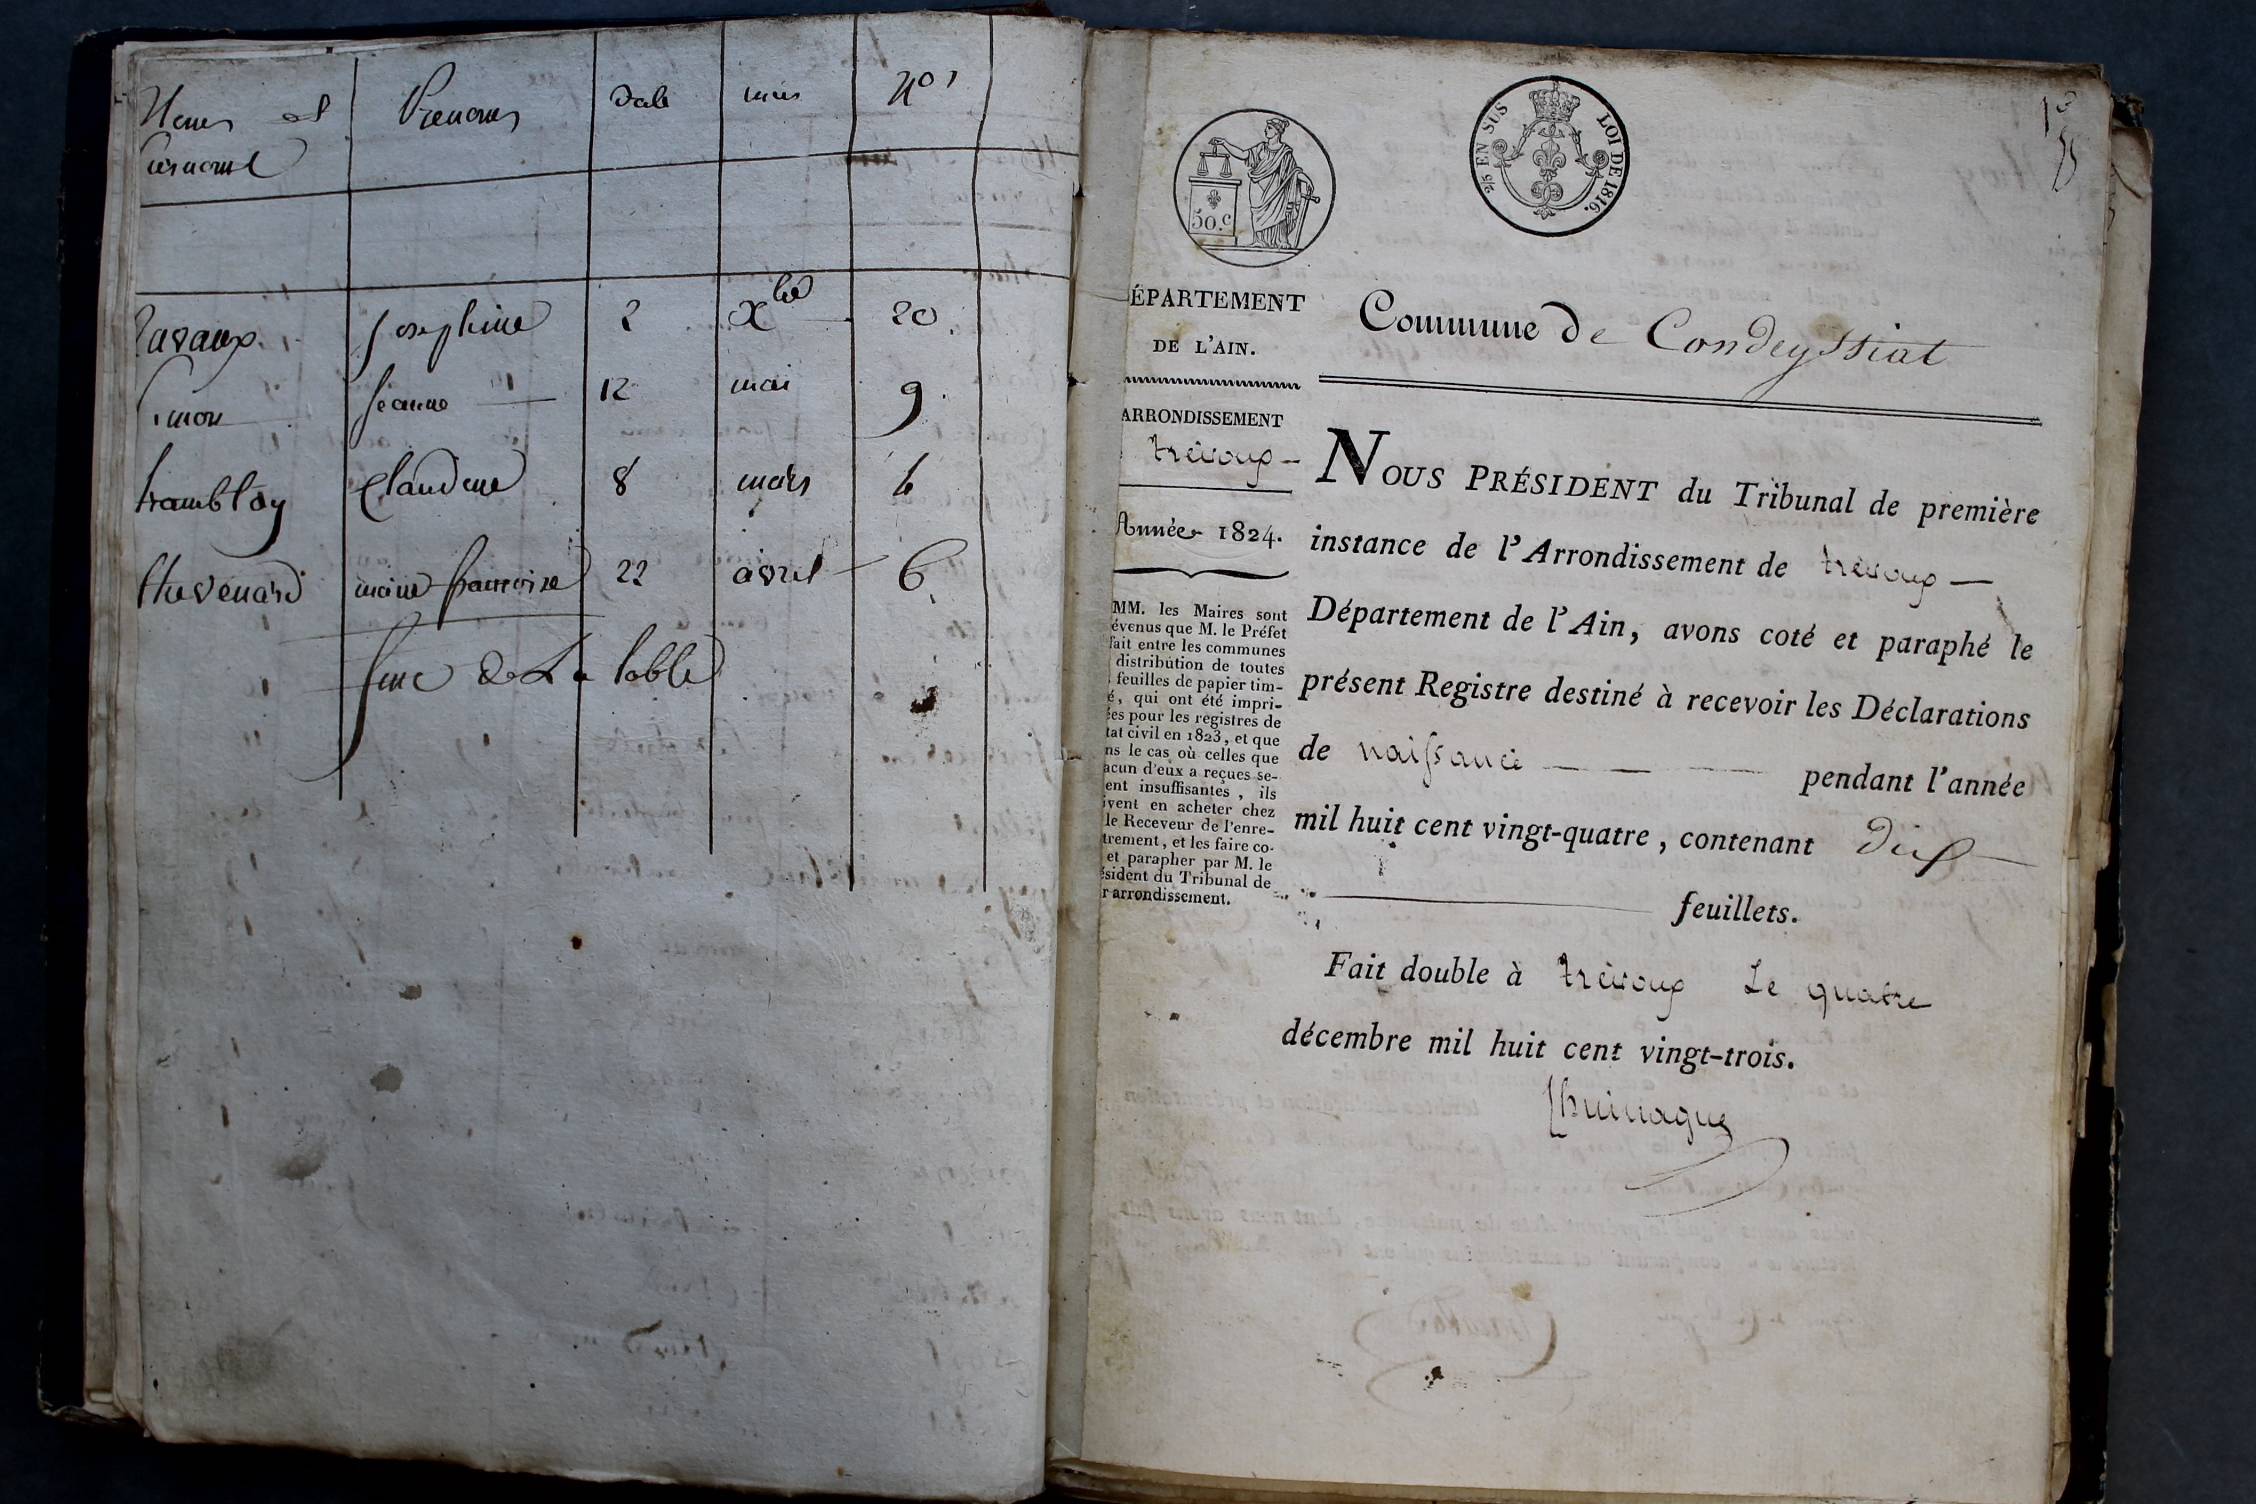 Noms et Prenoms date mois Nos
surnoms
ravaux Josephine 2 xbre 20.
Simon Jeanne 12 mai 9.
tramblay Claudine 8 mars 4
thevenard marie francoise 22 avril 6.
fine de La table
50.c
2/5 EN SUS LOI DE 1816.
1er
ÉPARTEMENT
DE L'AIN.
Commune de Condeyssiat
ARRONDISSEMENT
trévoux
Année 1824.
MM. les Maires sont
évenus que M. le Préfet
fait entre les communes
distribution de toutes
feuilles de papier tim-
é, qui ont été impri-
ées pour les registres de
tat civil en 1823, et que
ns le cas où celles que
acun d'eux a reçues se-
ent insuffisantes, ils
ivent en acheter chez
le Receveur de l'enre-
trement, et les faire co-
et parapher par M. le
ésident du Tribunal de
r arrondissement.
NOUS PRÉSIDENT du Tribunal de première
instance de l'Arrondissement de trévoux
Département de l'Ain, avons coté et paraphé le
présent Registre destiné à recevoir les Déclarations
de naissance pendant l'année
mil huit cent vingt-quatre, contenant dix
feuillets.
Fait double à trévoux Le quatre
décembre mil huit cent vingt-trois.